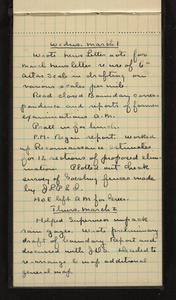 Wednes. March 1
Wrote News Letter note for
March News letter re use of 6"
 scale in drafting on
various scales per mile.
Read closed Boundary corres-
pondence and reports of former
examinations A.M.
Pratt in for lunch.
P.M. Again report. Worked
up Reconnaissance estimates
for 12 sections of proposed Elim-
ination. Plotted out check
survey of boundary fence made
by J.P.
H.O.E. left A.M. for
Thurs. March 2
Helped Supervisor unpack
rain gage. Wrote preliminary
draft of Boundary Report and
discussed it with J.D.G. Decided to
re-arrange & map additional
general map.